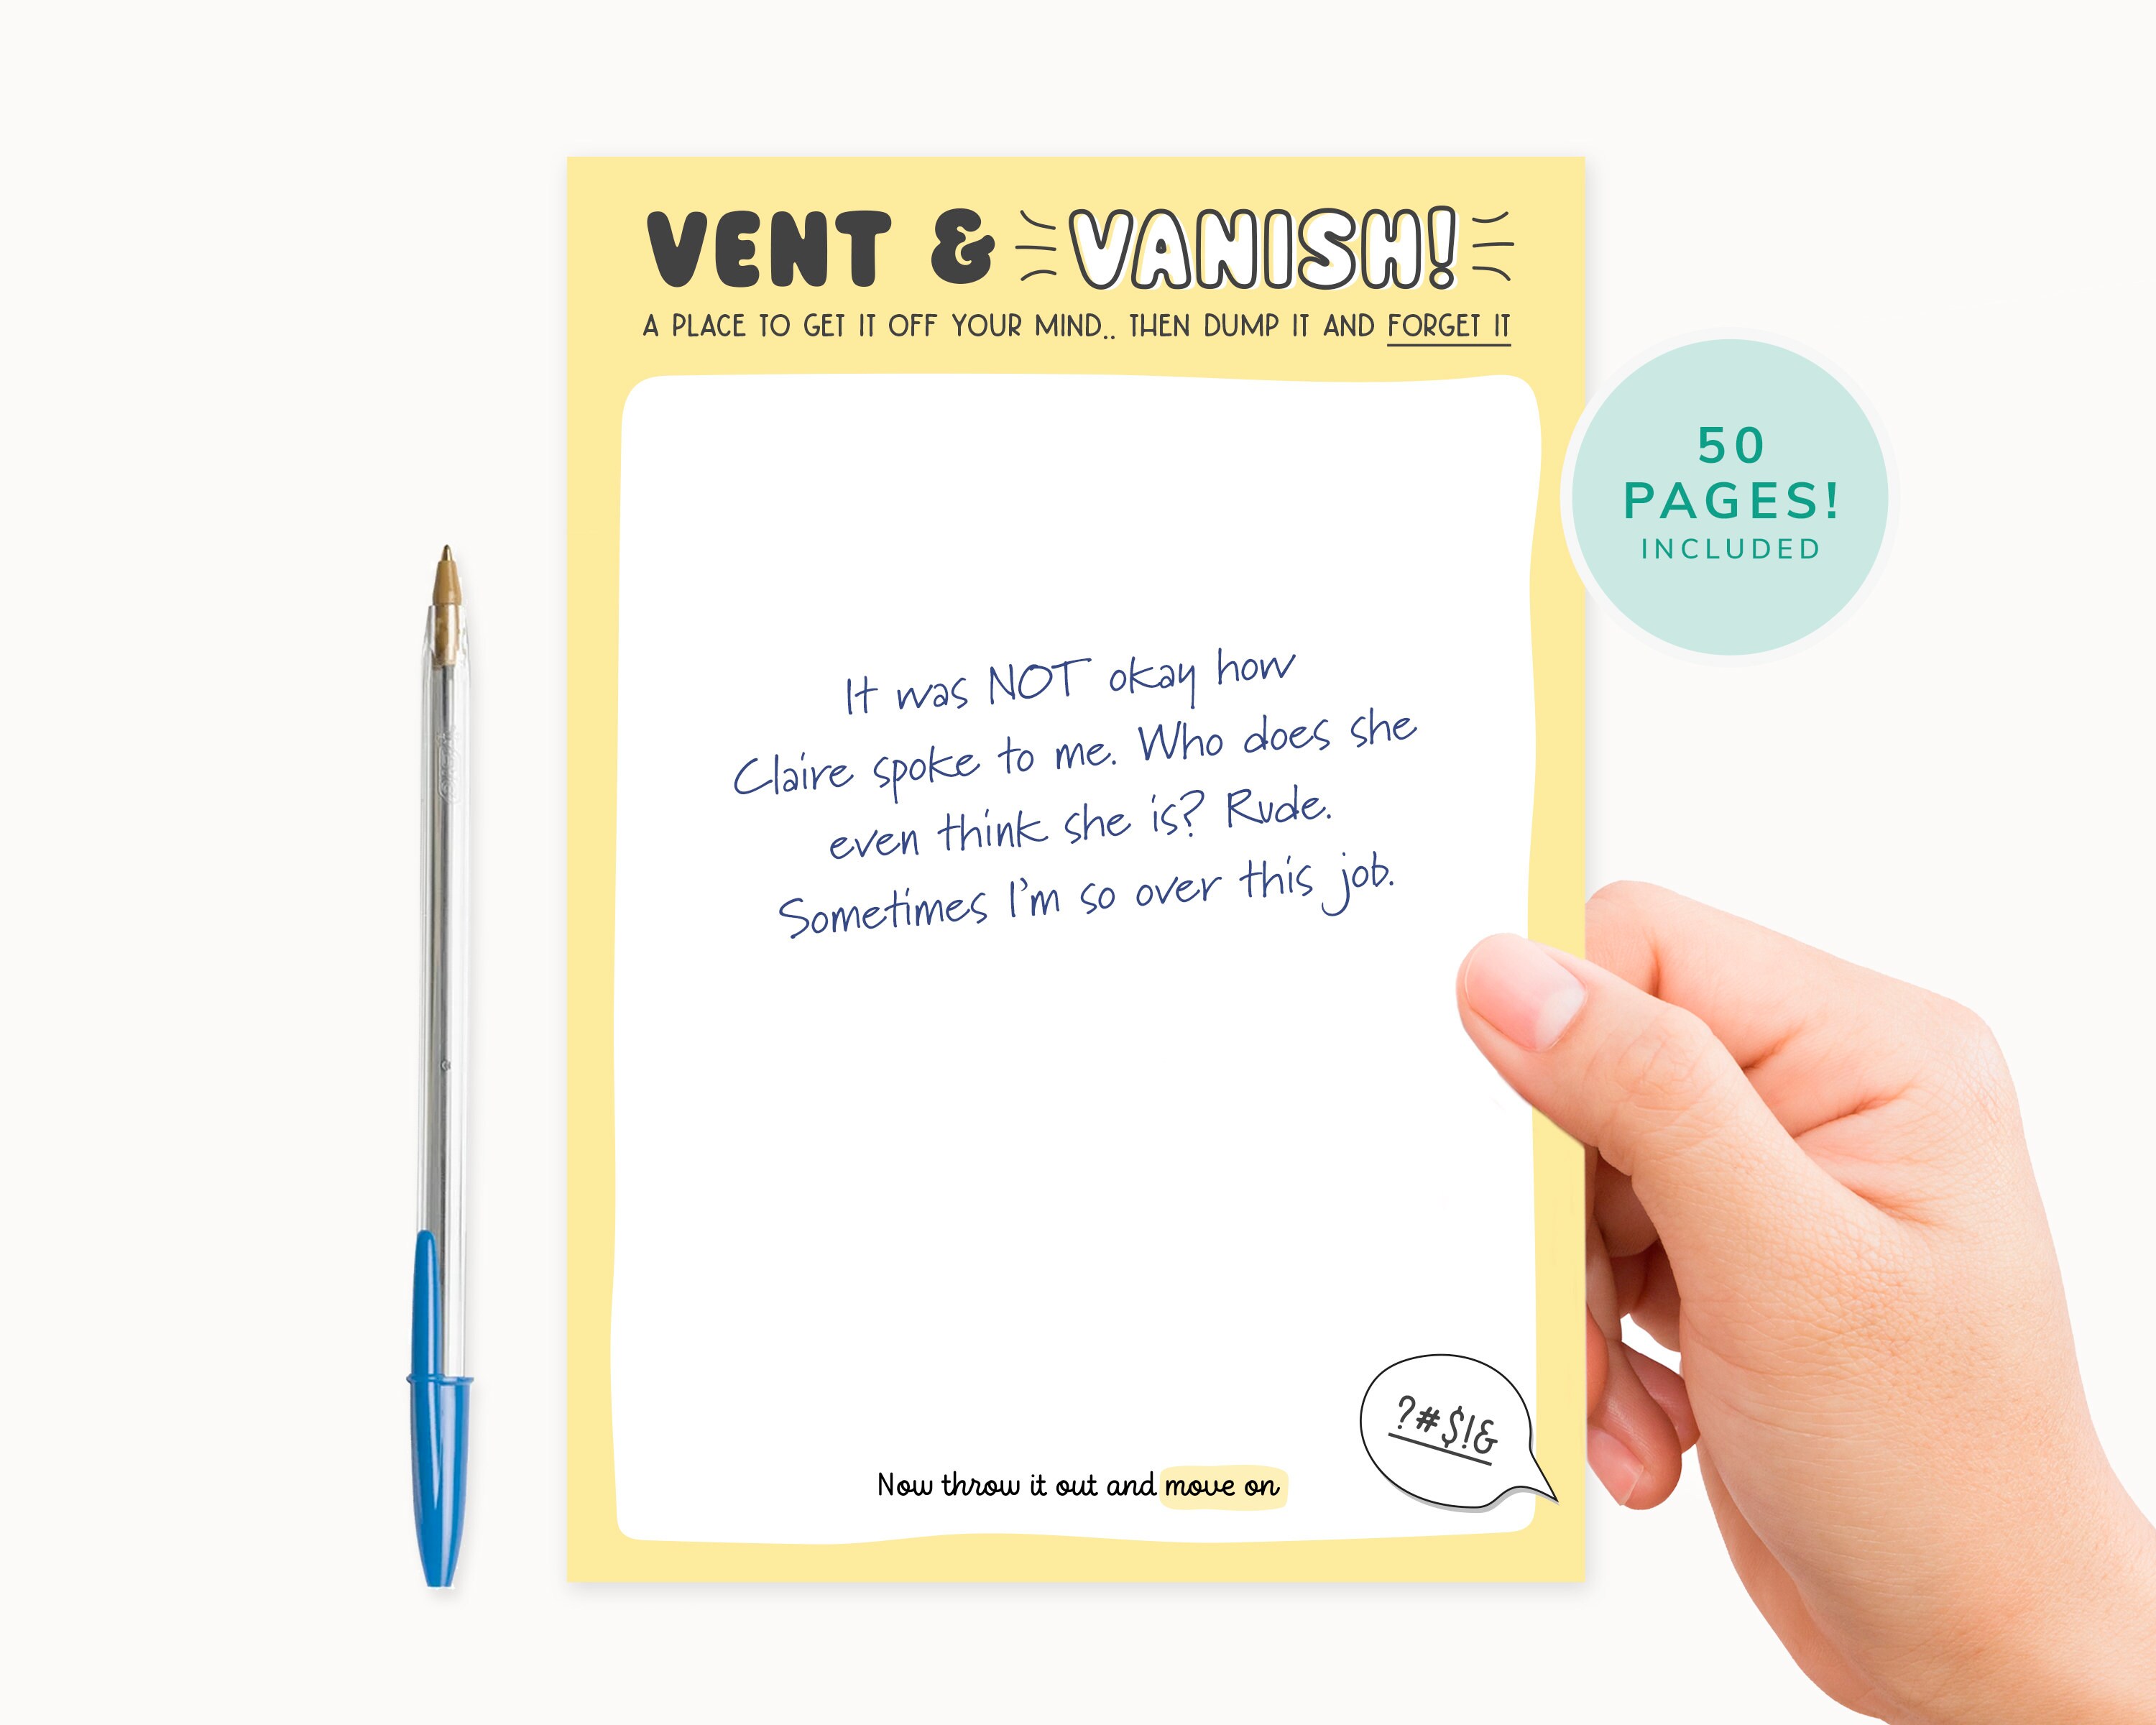 VENT & VANISH!
A PLACE TO GET IT OFF YOUR MIND.. THEN DUMP IT AND FORGET IT
50
PAGES!
INCLUDED
It was NOT okay how
Claire spoke to me. Who does she
even think she is? Rude.
Sometimes I'm so over this job.
?#$!&
Now throw it out and move on